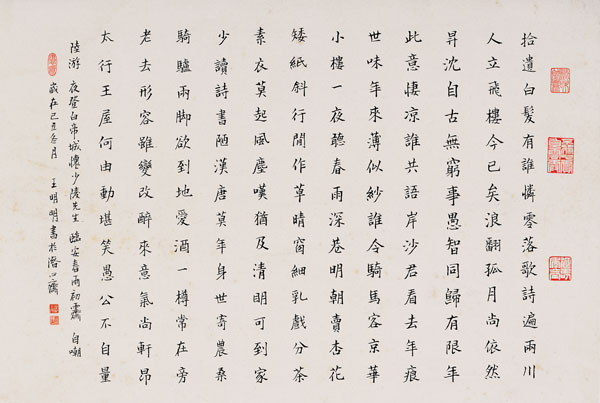 拾遺白髮有誰憐零落歌詩遍兩川
人立飛樓今已矣浪翻孤月尚依然
昇沈自古無窮事愚智同歸有限年
此意悽涼誰共語岸沙君看去年痕
世味年來薄似紗誰令騎馬客京華
小樓一夜聽春雨深巷明朝賣杏花
矮紙斜行閒作草晴窗細乳戲分茶
素衣莫起風塵嘆猶及清明可到家
少讀詩書陋漢唐莫年身世寄農桑
騎驢兩脚欲到地愛酒一樽常在旁
老去形容雖變改醉來意氣尚軒昂
太行王屋何由動堪笑愚公不自量
陸游 夜登白帝城懷少陵先生 臨安春雨初霽 自嘲
歲在己丑冬月 王明明書於潛心齋